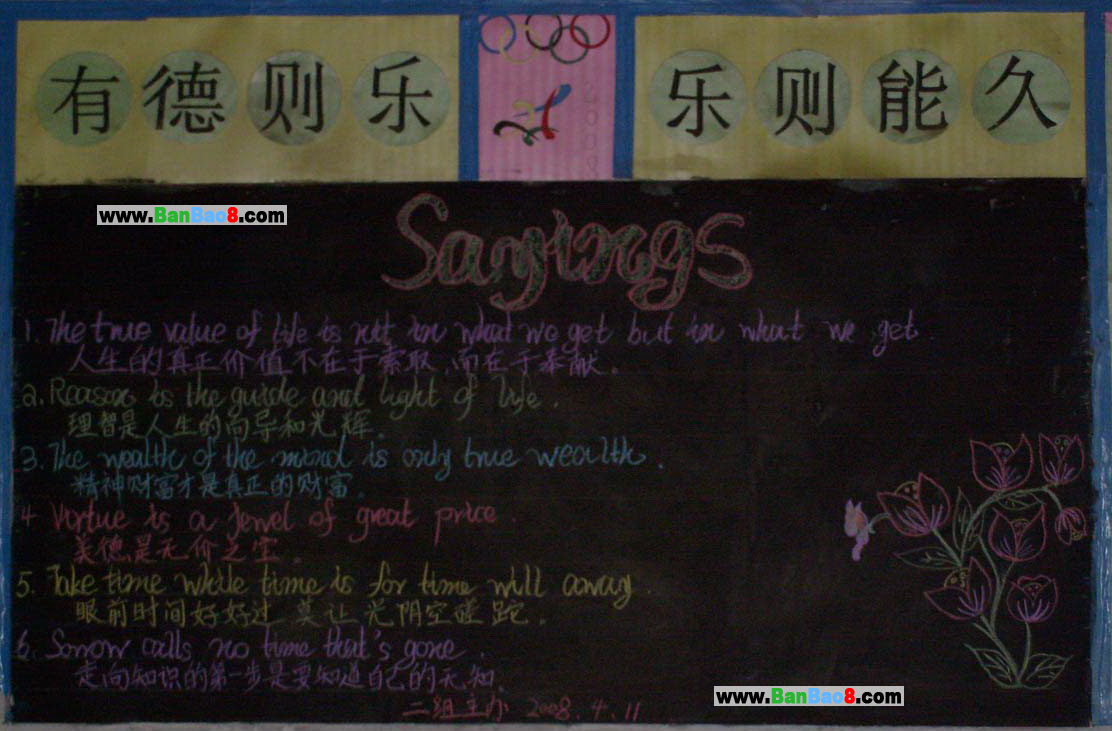 有德则乐
乐则能久
2008
www.BanBao8.com
Sayings
1. The true value of life is not in what we get but in what we get.
人生的真正价值不在于索取,而在于奉献。
2. Reason is the guide and light of life.
理智是人生的向导和光辉。
3. The wealth of the mind is only true wealth.
精神财富才是真正的财富。
4 Virtue is a jewel of great price.
美德是无价之宝.
5. Take time while time is for time will away.
眼前时间好好过 莫让光阴空蹉跎.
6. Sorrow calls no time that's gone.
走向知识的第一步是要知道自己的无知.
www.BanBao8.com
二组主办 2008.4.11